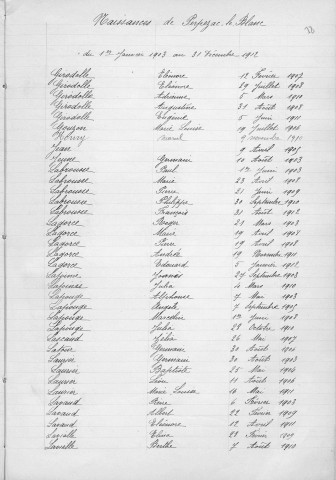 Naissances de Perpezac le Blanc
du 1er Janvier 1903 au 31 Décembre 1912
Girodolle Eléonore 12 Février 1907
Girodolle Eléonore 29 Juillet 1908
Girodolle Adrienne 5 Mars 1910
Girodolle Augustine 31 Août 1908
Girodolle Eugène 5 Juin 1911
Gouzon Marie Louise 19 Juillet 1906
9 novembre 1910
Jean 9 Avril 1907
Jeune Germain 10 Août 1903
Labrousse Paul 1er Juin 1903
Labrousse Marie 23 Avril 1908
Labrousse Pierre 21 Juin 1909
Labrousse Philippe 30 Septembre 1910
Labrousse François 31 Août 1912
Lagorce Roger 21 Mars 1903
Lagorce Marie 19 Avril 1908
Lagorce Pierre 19 Avril 1908
Lagorce Andrée 19 Novembre 1911
Lagorce Edouard 5 Janvier 1912
27 Septembre 1903
Julia 4 Mars 1910
Lapouge Alphonse 7 Mai 1903
Lapouge Angèle 7 Septembre 1907
Lapouge Marcelin 1er Juin 1908
Lapouge Julia 28 Octobre 1910
Lascaud Félia 26 Mai 1907
Germaine 30 Août 1905
Lauren Germain 30 Août 1903
Lauren Baptiste 25 Mai 1904
Lauren 11 Août 1906
Lauren Marie Louise 16 Mai 1911
Lavaud René 6 Février 1903
Lavaud Albert 22 Février 1909
Lavaud Eléonore 12 Avril 1911
Lavialle Elina 28 Février 1909
Lavialle Berthe 7 Août 1910